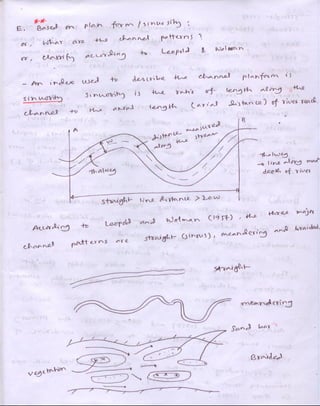 E. Based on plan form / sinuosity :
or, What are the channel patterns ?
or, classify according to Leopold & Wolman.
- An index used to describe the channel planform is
sinuosity. Sinuosity is the ratio of length along the
channel to the axial length (axial distance) of river reach
A
B
distance measured
along the stream
thalweg
thalweg
→ line along max
depth of river
straight line distance > 20w
According to Leopold and Wolman (1957), the three major
channel patterns are straight (sinuous), meandering and braided.
straight
meandering
Sand bar
vegetation
Braided